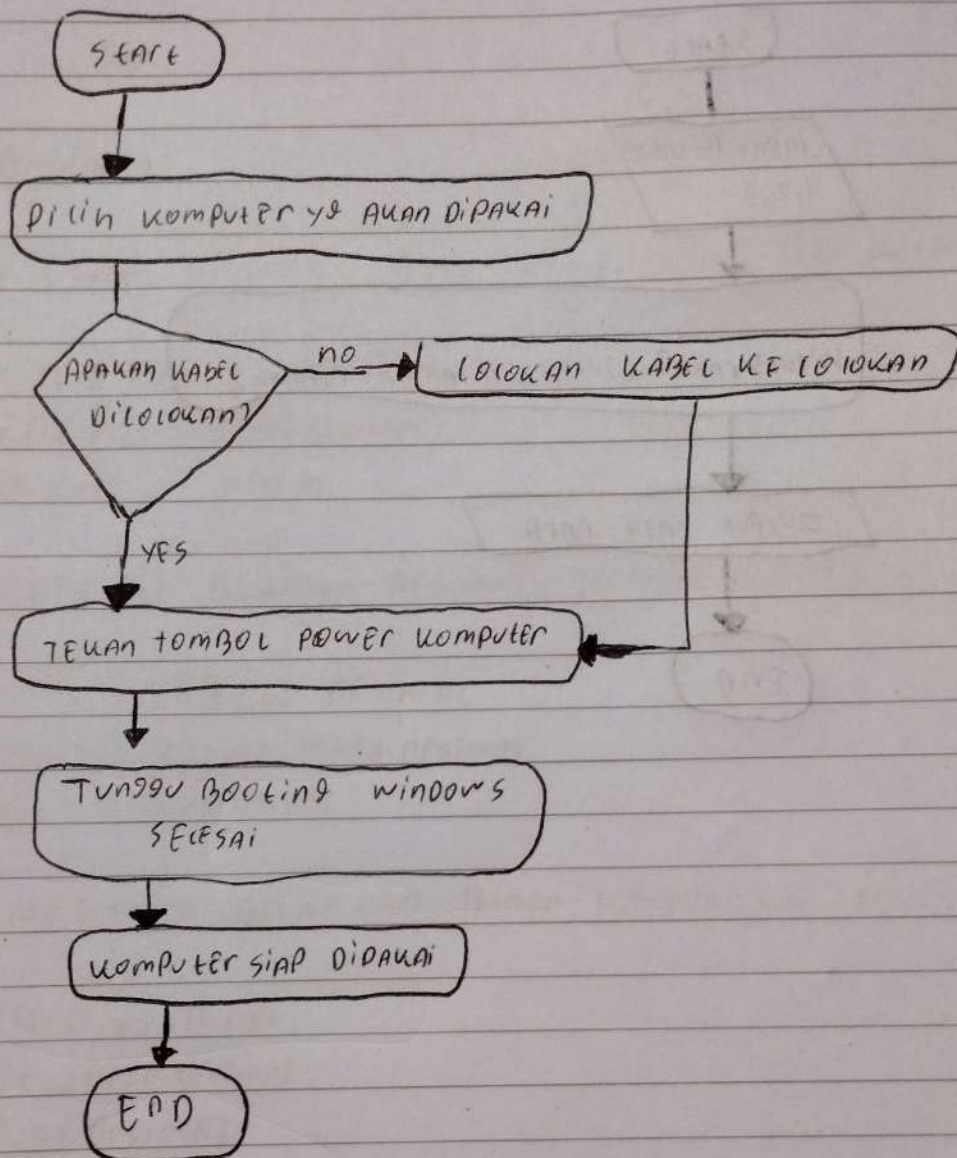 Start
Pilih komputer yg AKAN DiPAKAi
APAKAH KABEL
DiCOLOKAN?
no
COLOKAN KABEL KE COLOKAN
YES
TEKAN tOMBOL POWER KOMPUTER
Tunggu Booting windows
SELESAi
KOMPUTER SiAP DiPAKAi
END